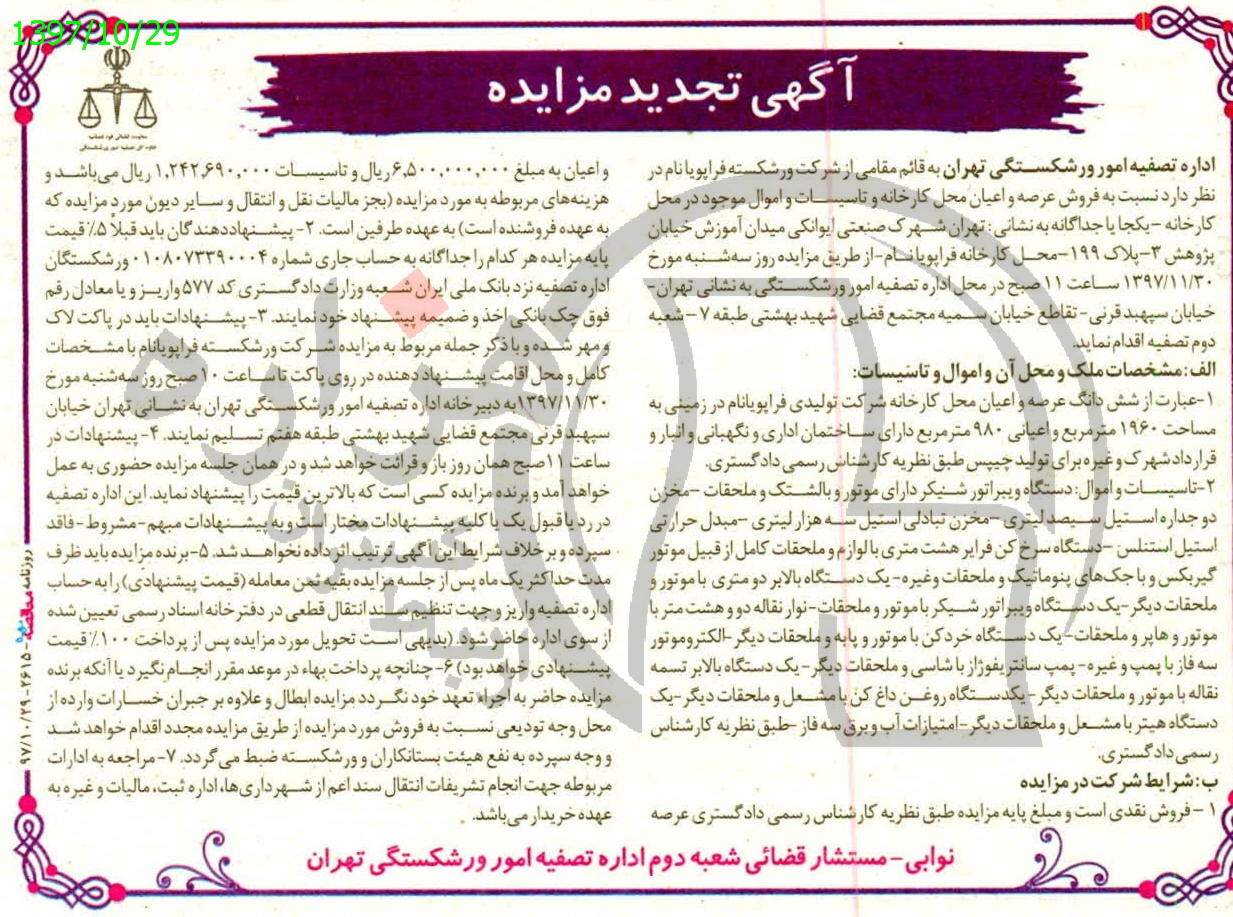 1397/10/29
آگهی تجدید مزایده
اداره تصفیه امور ورشکستگی تهران به قائم مقامی از شرکت ورشکسته فراپویانام در
نظر دارد نسبت به فروش عرصه و اعیان محل کارخانه و تاسیسات و اموال موجود در محل
کارخانه -یکجا یا جداگانه به نشانی: تهران شهرک صنعتی ایوانکی میدان آموزش خیابان
پژوهش ۳-پلاک ۱۹۹-محل کارخانه فراپویانام-از طریق مزایده روز سه‌شنبه مورخ
۱۳۹۷/۱۱/۳۰ ساعت ۱۱ صبح در محل اداره تصفیه امور ورشکستگی به نشانی تهران-
خیابان سپهبد قرنی- تقاطع خیابان سمیه مجتمع قضایی شهید بهشتی طبقه ۷-شعبه
دوم تصفیه اقدام نماید.
الف: مشخصات ملک و محل آن و اموال و تاسیسات:
۱-عبارت از شش دانگ عرصه و اعیان محل کارخانه شرکت تولیدی فراپویانام در زمینی به
مساحت ۱۹۶۰ مترمربع و اعیانی ۹۸۰ مترمربع دارای ساختمان اداری و نگهبانی و انبار و
قرارداد شهرک و غیره برای تولید چیپس طبق نظریه کارشناس رسمی دادگستری.
۲-تاسیسات و اموال: دستگاه ویبراتور شنیکر دارای موتور و بالشتک و ملحقات -مخزن
دو جداره استیل سیصد لیتری -مخزن تبادلی استیل سه هزار لیتری -مبدل حرارتی
استیل استنلس -دستگاه سرخ کن فرایر هشت متری با لوازم و ملحقات کامل از قبیل موتور
گیربکس و با جک‌های پنوماتیک و ملحقات وغیره- یک دستگاه بالابر دو متری با موتور و
ملحقات دیگر-یک دستگاه ویبراتور شیکر با موتور و ملحقات-نوار نقاله دو و هشت متر با
موتور و هاپر و ملحقات-یک دستگاه خردکن با موتور و پایه و ملحقات دیگر-الکتروموتور
سه فاز با پمپ و غیره- پمپ سانتریفوژ از با شاسی و ملحقات دیگر-یک دستگاه بالابر تسمه
نقاله با موتور و ملحقات دیگر- یکدستگاه روغن داغ کن با مشعل و ملحقات دیگر-یک
دستگاه هیتر با مشعل و ملحقات دیگر-امتیازات آب و برق سه فاز -طبق نظریه کارشناس
رسمی دادگستری.
ب: شرایط شرکت در مزایده
۱-فروش نقدی است و مبلغ پایه مزایده طبق نظریه کارشناس رسمی دادگستری عرصه
و اعیان به مبلغ ۶,۵۰۰,۰۰۰,۰۰۰ ریال و تاسیسات ۱,۲۴۲,۶۹۰,۰۰۰ ریال می‌باشد و
هزینه‌های مربوطه به مورد مزایده (بجز مالیات نقل و انتقال و سایر دیون مورد مزایده که
به عهده فروشنده است) به عهده طرفین است. ۲- پیشنهاددهندگان باید قبلاً ۵٪ قیمت
پایه مزایده هر کدام را جداگانه به حساب جاری شماره ۰۱۰۸۰۷۳۳۹۰۰۰۴ ورشکستگان
اداره تصفیه نزد بانک ملی ایران شعبه وزارت دادگستری کد ۵۷۷ واریز و یا معادل رقم
فوق چک بانکی اخذ و ضمیمه پیشنهاد خود نمایند. ۳- پیشنهادات باید در پاکت لاک
و مهر شده و با ذکر جمله مربوط به مزایده شرکت ورشکسته فراپویانام با مشخصات
کامل و محل اقامت پیشنهاد دهنده در روی پاکت تا ساعت ۱۰ صبح روز سه‌شنبه مورخ
۱۳۹۷/۱۱/۳۰ به دبیرخانه اداره تصفیه امور ورشکستگی تهران به نشانی تهران خیابان
سپهبد قرنی مجتمع قضایی شهید بهشتی طبقه هفتم تسلیم نمایند. ۴- پیشنهادات در
ساعت ۱۱صبح همان روز باز و قرائت خواهد شد و در همان جلسه مزایده حضوری به عمل
خواهد آمد و برنده مزایده کسی است که بالاترین قیمت را پیشنهاد نماید. این اداره تصفیه
در رد یا قبول یک یا کلیه پیشنهادات مختار است و به پیشنهادات مبهم-مشروط-فاقد
سپرده و بر خلاف شرایط این آگهی ترتیب اثر داده نخواهد شد. ۵-برنده مزایده باید ظرف
مدت حداکثر یک ماه پس از جلسه مزایده بقیه ثمن معامله (قیمت پیشنهادی) را به حساب
اداره تصفیه واریز و جهت تنظیم سند انتقال قطعی در دفترخانه اسناد رسمی تعیین شده
از سوی اداره حاضر شود. (بدیهی است تحویل مورد مزایده پس از پرداخت ۱۰۰٪ قیمت
پیشنهادی خواهد بود) ۶- چنانچه پرداخت بهاء در موعد مقرر انجام نگیرد یا آنکه برنده
مزایده حاضر به اجراء تعهد خود نگردد مزایده ابطال و علاوه بر جبران خسارات وارده از
محل وجه تودیعی نسبت به فروش مورد مزایده از طریق مزایده مجدد اقدام خواهد شد
و وجه سپرده به نفع هیئت بستانکاران و ورشکسته ضبط می گردد. ۷- مراجعه به ادارات
مربوطه جهت انجام تشریفات انتقال سند اعم از شهرداری‌ها، اداره ثبت، مالیات و غیره به
عهده خریدار می‌باشد.
روزنامه مناقصه - ۲۶۱۵ - ۹۷/۱۰/۲۹
نوابی- مستشار قضائی شعبه دوم اداره تصفیه امور ورشکستگی تهران